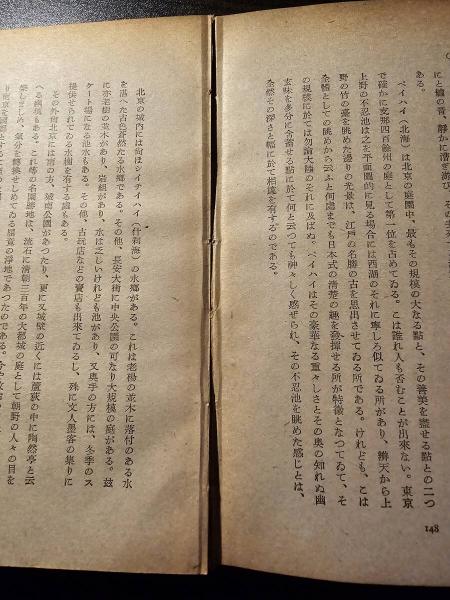 にと櫨の音、靜かに漕ぎ遊び、その
ある。
ペイハイ（北海）は北京の庭園中、最もその規模の大なる點と、その善美を盡せる點との二つ
で確かに支那四百餘州の庭として第一位を占めてゐる。こは誰れ人も否むことが出來ない。東京
上野の不忍池は之を平面圖的に見る場合には西湖のそれに寧しろ似てゐる所があり、辨天から上
野の竹の臺を眺めた邊りの光景は、江戸の名勝の古を思出させてゐる所である。けれども、こは
全體としての眺めから云ふと何處までも日本式の清楚の趣を發揮せる所が特徵となつてゐて、そ
の規模に於ては勿論大陸のそれに及ばぬ。ペイハイはその豪華なる重々しさとその奧の知れぬ幽
玄味を多分に含蓄せる點に於て何と云つても神々しく感ぜられ、その不忍池を眺めた感じとは、
全然その深さと幅に於て相違を有するのである。
148
北京の城內には尙ほシイチハイ（什刹海）の水鄕がある。これは老楊の並木に落付のある水
を湛へた古色蒼然たる水鄕である。その他、長安大街に中央公園の可なり大規模の庭がある。玆
に亦老樹の並木があり、岩組があり、水は乏しいけれども池があり、又奧手の方には、冬季のス
ケート場になる池水もある。その他、古玩店などの賣店も出來てゐるし、殊に文人墨客の集りに
提供せられてゐる水榭を有する處もある。
その外南北京には南の方、城南公園があつたり、更に又城壁の近くには蘆荻の中に陶然亭と云
へる病風もある。これ等の名園勝地は、流石に淸朝三百年の大都城の庭として朝野の人々の目を
樂しましめ、氣分を轉換せしめてゐる屈竟の淨地であつたのである。